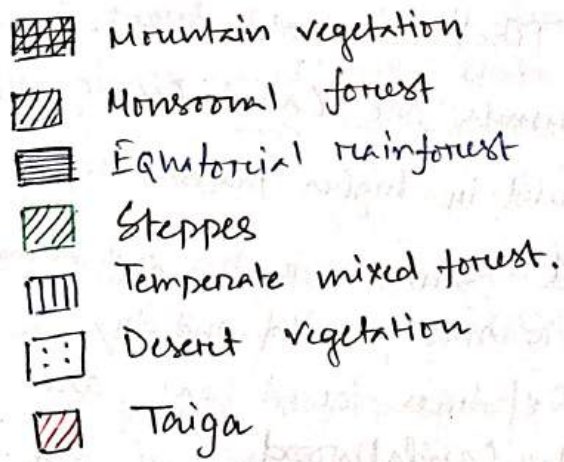 Mountain vegetation
Monsoonal forest
Equatorial rainforest
Steppes
Temperate mixed forest.
Desert vegetation
Taiga